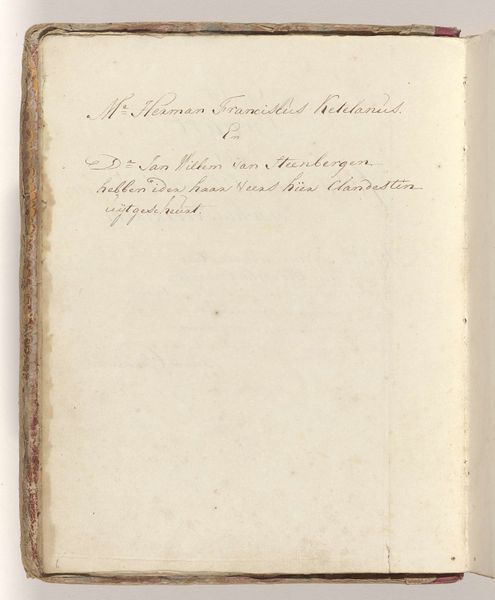 Mr Herman Franciscus Ketelanus.
En
Dr Jan Willem van Steenbergen
hebben ider haar veers hier Clandestin
uijtgescheurt.